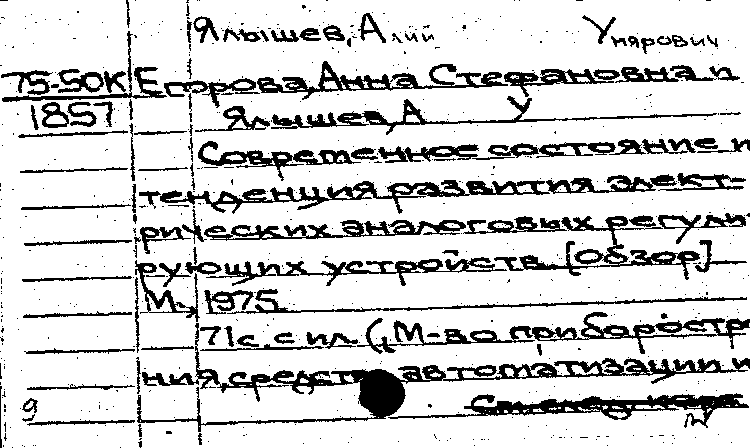 Ялышев, Алий Умярович
75-50К Егорова, Анна Стефановна и
1857 Ялышев, А У
Современное состояние и
тенденция развития элект-
рических аналоговых регули
рующих устройств. [Обзор]
М., 1975
71 с. с ил. (М-во приборостро
ния, средств автоматизации и
9 См. след. карт.